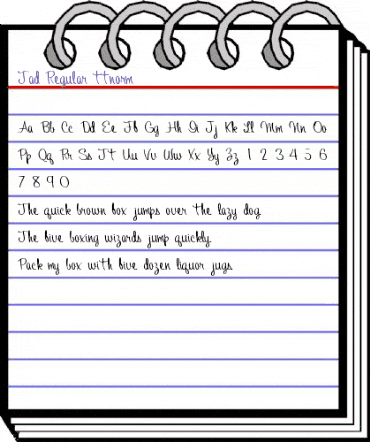 Tad Regular ttnorm
Aa Bb Cc Dd Ee Ff Gg Hh Ii Jj Kk Ll Mm Nn Oo
Pp Qq Rr Ss Tt Uu Vv Ww Xx Yy Zz 1 2 3 4 5 6
7 8 9 0
The quick brown fox jumps over the lazy dog
The five boxing wizards jump quickly
Pack my box with five dozen liquor jugs